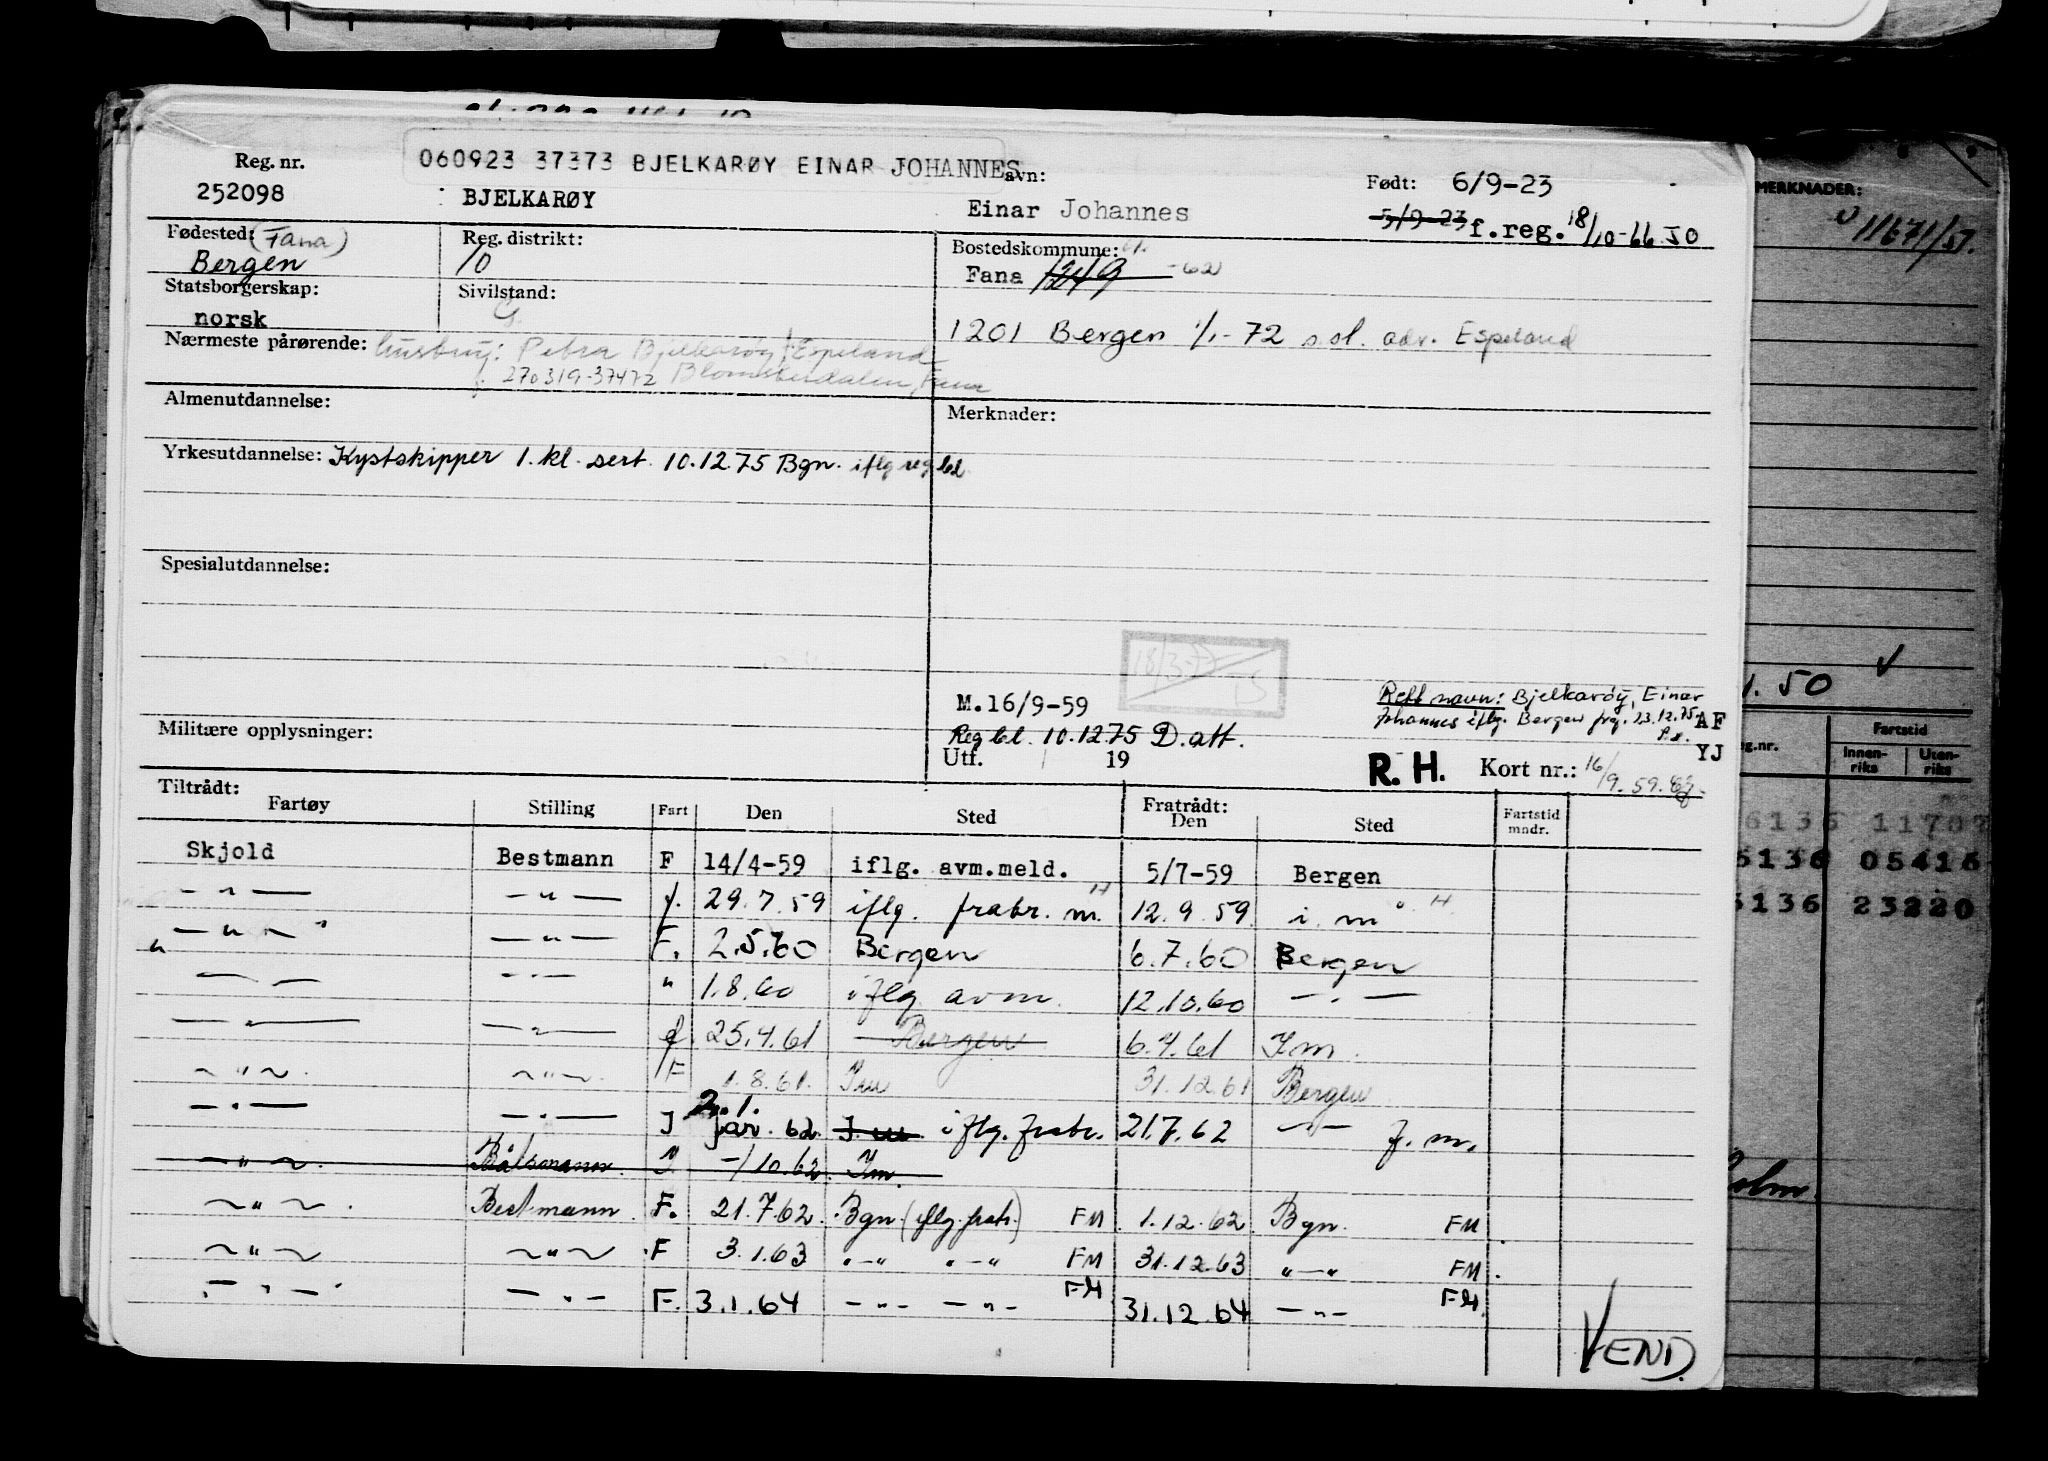 060923 37373 BJELKARØY EINAR JOHANNES
Reg. nr. avn: Født: 6/9-23
252098 BJELKARØY Einar Johannes 5/9-23 f.reg. 18/10-66 JO
Fødested: (Fana) Reg. distrikt: Bostedskommune:
Bergen 10 Fana 1249 -62
Statsborgerskap: Sivilstand:
norsk G. 1201 Bergen 1/1-72 s.sl. adr. Espeland
Nærmeste pårørende: hustru: Petra Bjelkarøy f Espeland
f. 270319-37472 Blomsterdalen, Fana
Almenutdannelse: Merknader:
Yrkesutdannelse: Kystskipper 1. kl. sert. 10.12.75 Bgn. iflg reg bl.
Spesialutdannelse:
M.16/9-59 Rett navn: Bjelkarøy, Einar
Johannes iflg. Bergen freg. 23.12.75 AF
Militære opplysninger: Reg bl. 10.12.75 D.att. YJ
Utf. 19 R. H. Kort nr.: 16/9.59.
Tiltrådt: Fratrådt:
Fartøy Stilling Fart Den Sted Den Sted Fartstid mndr.
Skjold Bestmann F 14/4-59 iflg. avm.meld. 5/7-59 Bergen
— " — — " — f. 29.7.59 iflg. fratr. m. 12.9.59 i. m
— " — — " — F. 2.5.60 Bergen 6.7.60 Bergen
— — — " — " 1.8.60 iflg avm. 12.10.60 — " —
— " — — " — f. 25.4.61 Bergen 6.7.61 I m.
— " — — " — F 1.8.61. Im 31.12.61 Bergen
— " — — " — J 2.1. jar. 62 I m iflg. fratr. 21.7.62 — " — f. m.
— " — Båtsmann. J -/10.62. Im.
— " — Bestmann F. 21.7.62. Bgn (iflg. fratr.) FM 1.12.62 Bgn. FM
— " — — " — F 3.1.63 " — " " — " FM 31.12.63 " — " FM.
— " — — " — F. 3.1.64 — " — — " — FM 31.12.64 — " — FM.
VEND.
MERKNADER:
11671/51.
1.50
g.nr. Fartstid
Innen-riks Uten-riks
6136 11702
6136 05416
6136 23220